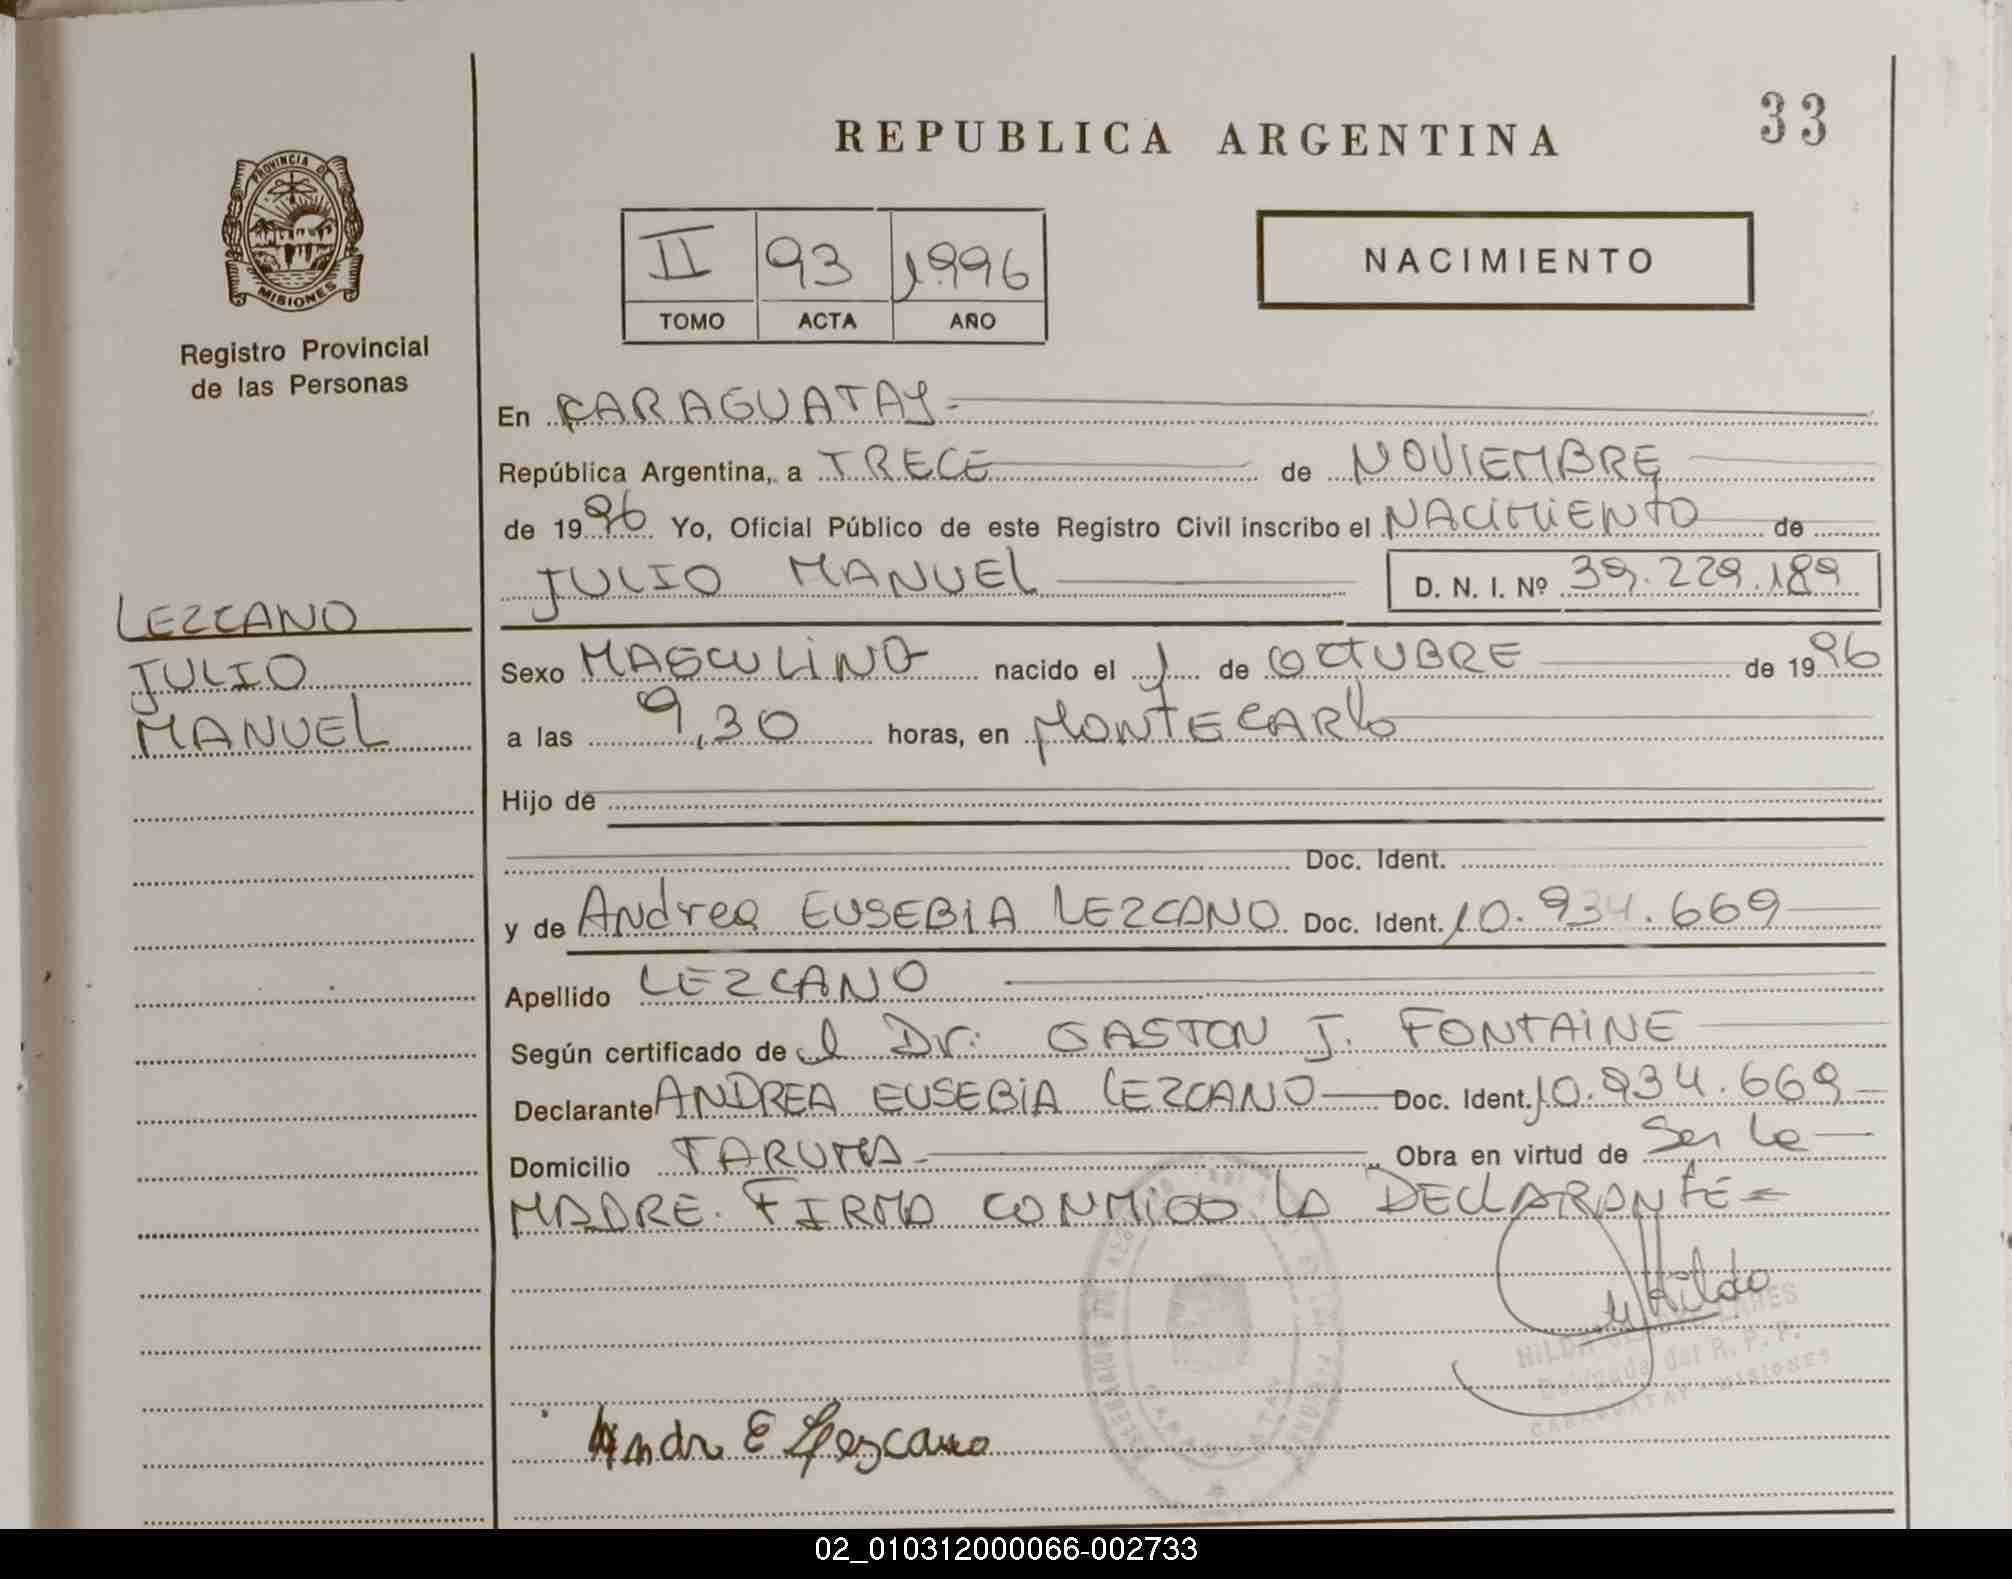 REPUBLICA ARGENTINA
33
PROVINCIA DE
MISIONES
Registro Provincial
de las Personas
II 93 1996
TOMO ACTA AÑO
NACIMIENTO
En CARAGUATAY
República Argentina, a TRECE de NOVIEMBRE
de 1996 Yo, Oficial Público de este Registro Civil inscribo el NACIMIENTO de
JULIO MANUEL D. N. I. Nº 39.229.189
LEZCANO
JULIO
MANUEL
Sexo MASCULINO nacido el 1 de OCTUBRE de 1996
a las 9,30 horas, en MONTECARlo
Hijo de
Doc. Ident.
y de Andrea EUSEBIA LEZCANO Doc. Ident. 10.934.669
Apellido LEZCANO
Según certificado de el Dr. GASTON J. FONTAINE
Declarante ANDREA EUSEBIA LEZCANO Doc. Ident. 10.934.669
Domicilio TARUMA Obra en virtud de Ser la
MADRE. FIRMA CONMIGO LA DECLARANTE=
Hilda
HILDA
Delegada del R. P. P.
CARAGUATAY - MISIONES
CARAGUATAY
Andr E Lezcano
02_010312000066-002733